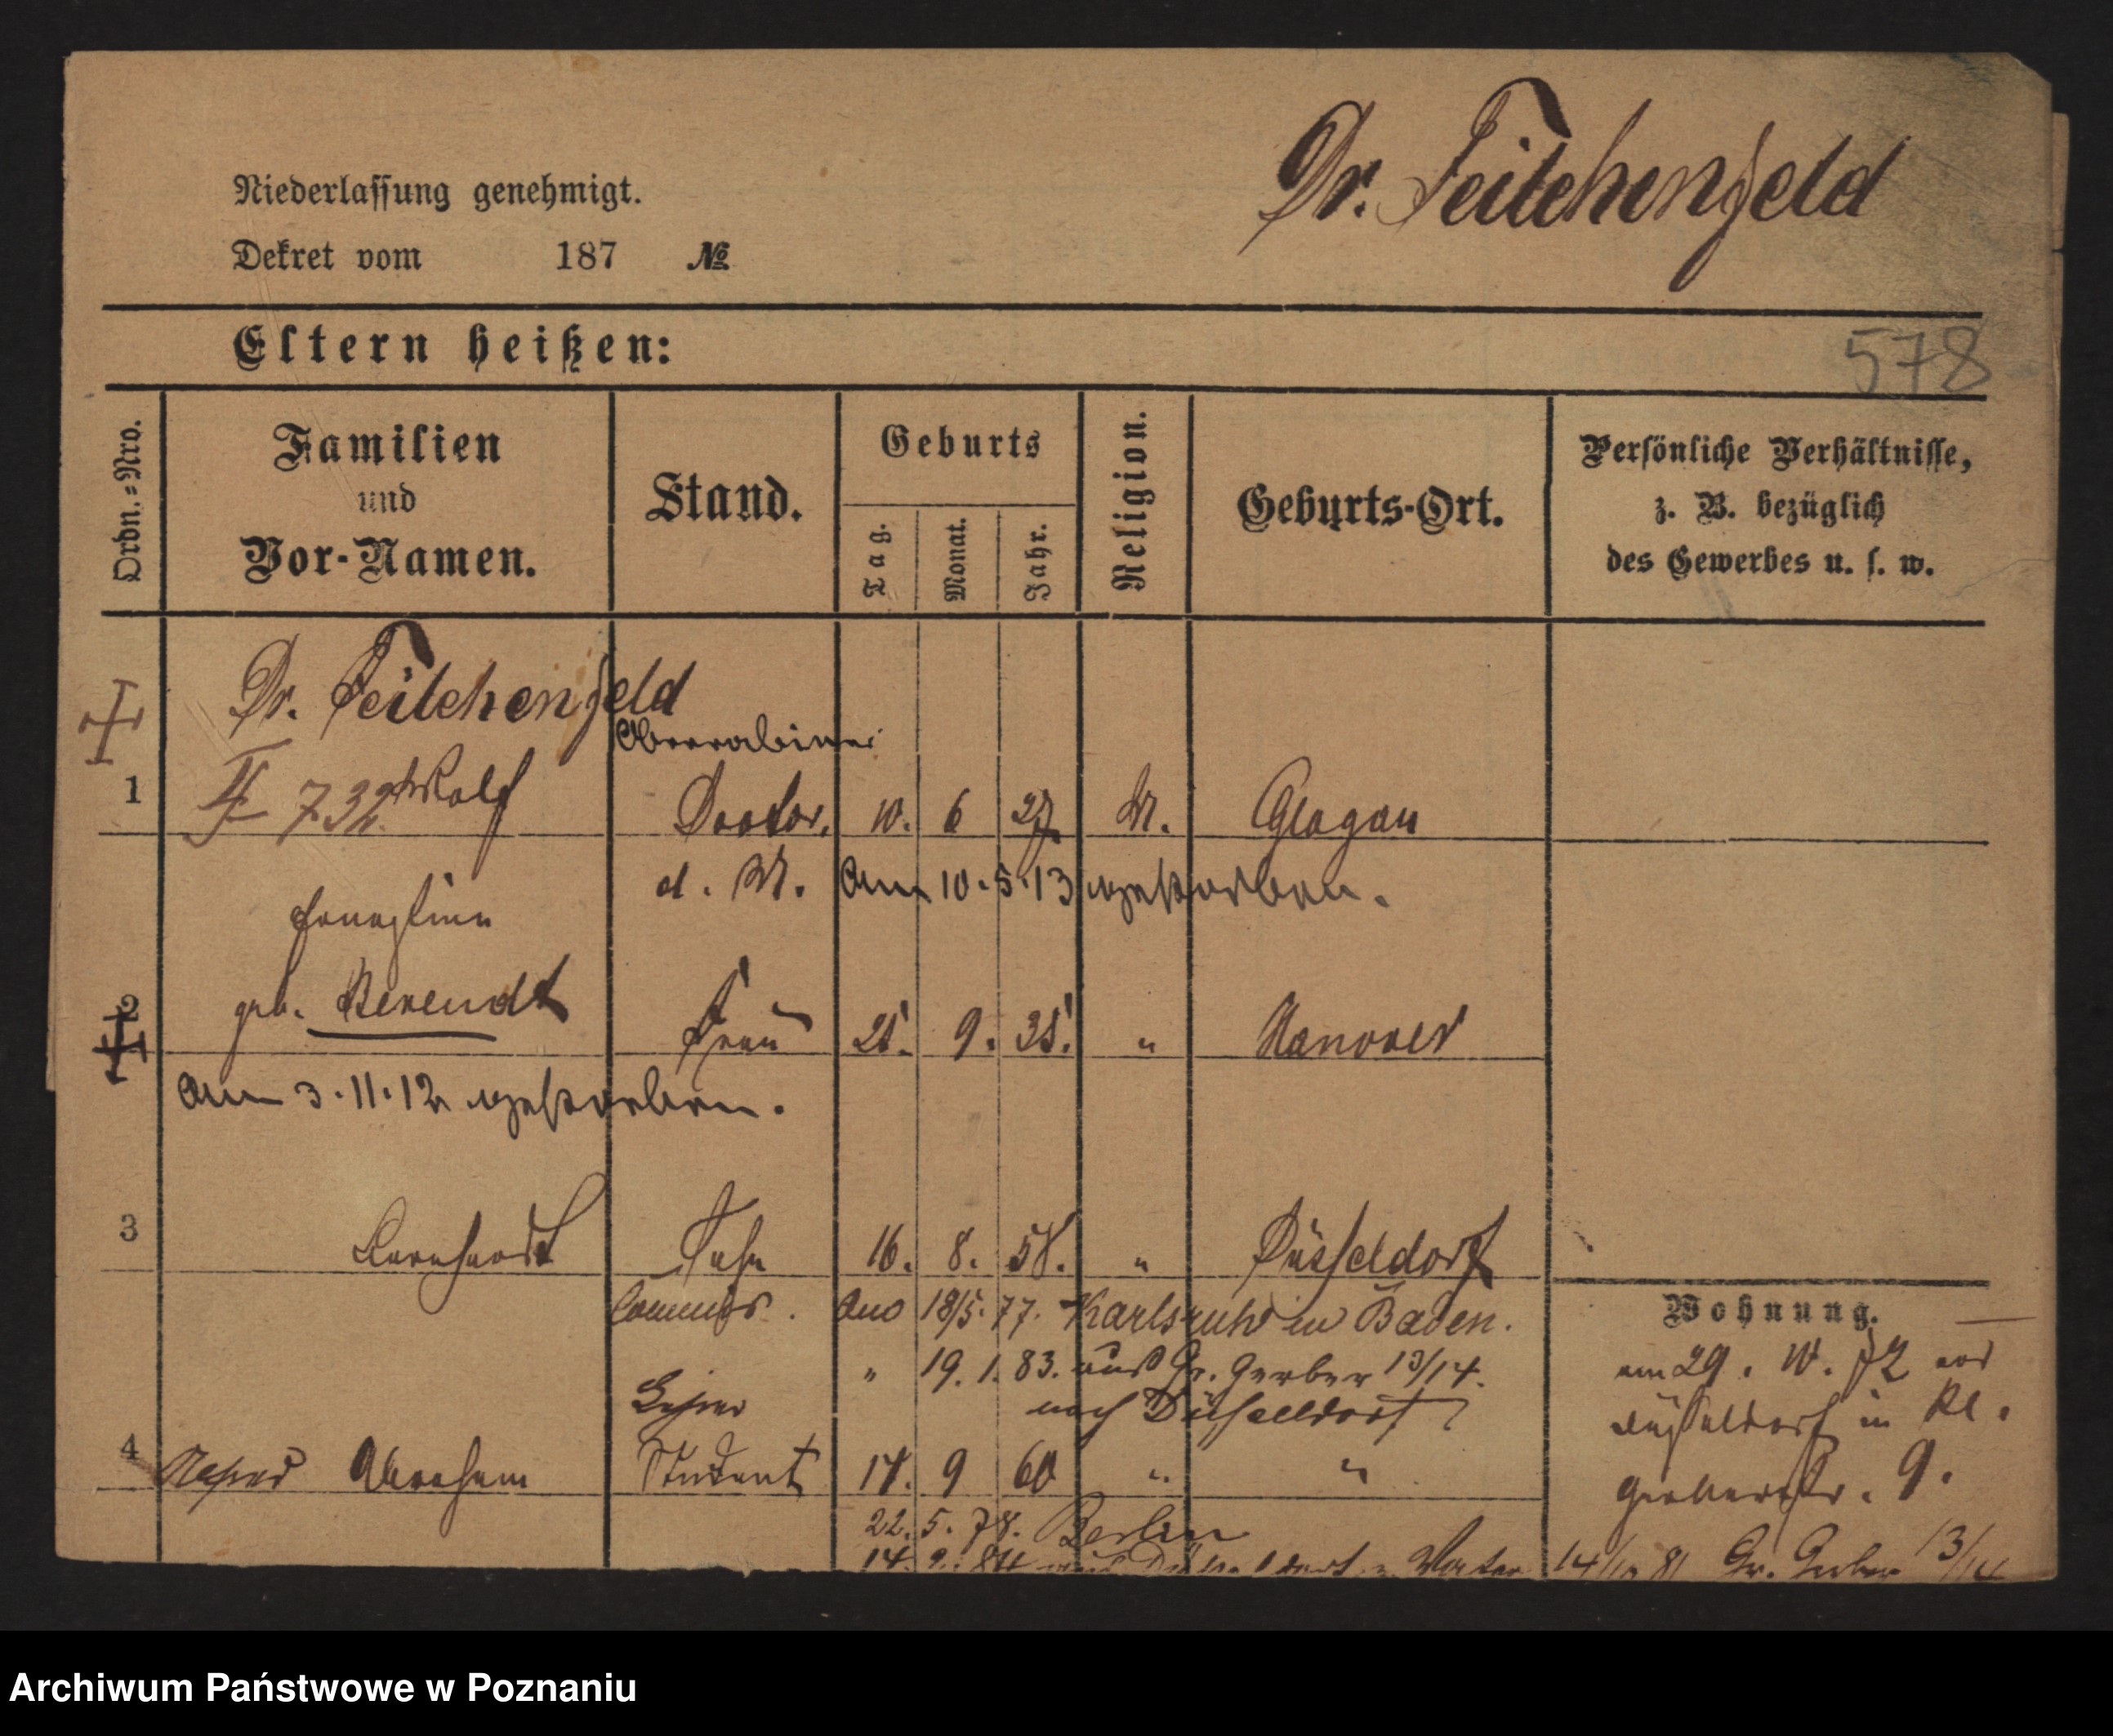 Dr. Feilchenfeld
Niederlassung genehmigt.
Dekret vom 187 №
Eltern heißen:
578
Ordn.=Nro.
Familien
und
Vor-Namen.
Stand.
Geburts
Tag.
Monat.
Jahr.
Religion.
Geburts-Ort.
Persönliche Verhältnisse,
z. B. bezüglich
des Gewerbes u. s. w.
Dr. Feilchenfeld
Oberrabiner
1 732 Wolf Doctor. 10. 6 27 M. Glogau
d. M. Am 10.5.13 gestorben.
Ernestine
2 geb. Berendt Frau 25. 9. 35. " Hanover
Am 3.11.12 gestorben.
3 Bernhardt Sohn 16. 8. 58. " Düsseldorf
Commis. Ano 18/5.77. Karlsruhe in Baden.
" 19. 1. 83. aus Gr. Gerber 13/14.
nach Düsseldorf
4 Abraham Student 17. 9 60 " "
22. 5. 78. Berlin
14. 9. 84
Wohnung.
am 29. 10. 72 aus
Düsseldorf in Kl.
Gerberstr. 9.
14/10 81 Gr. Gerber 13/14
Archiwum Państwowe w Poznaniu